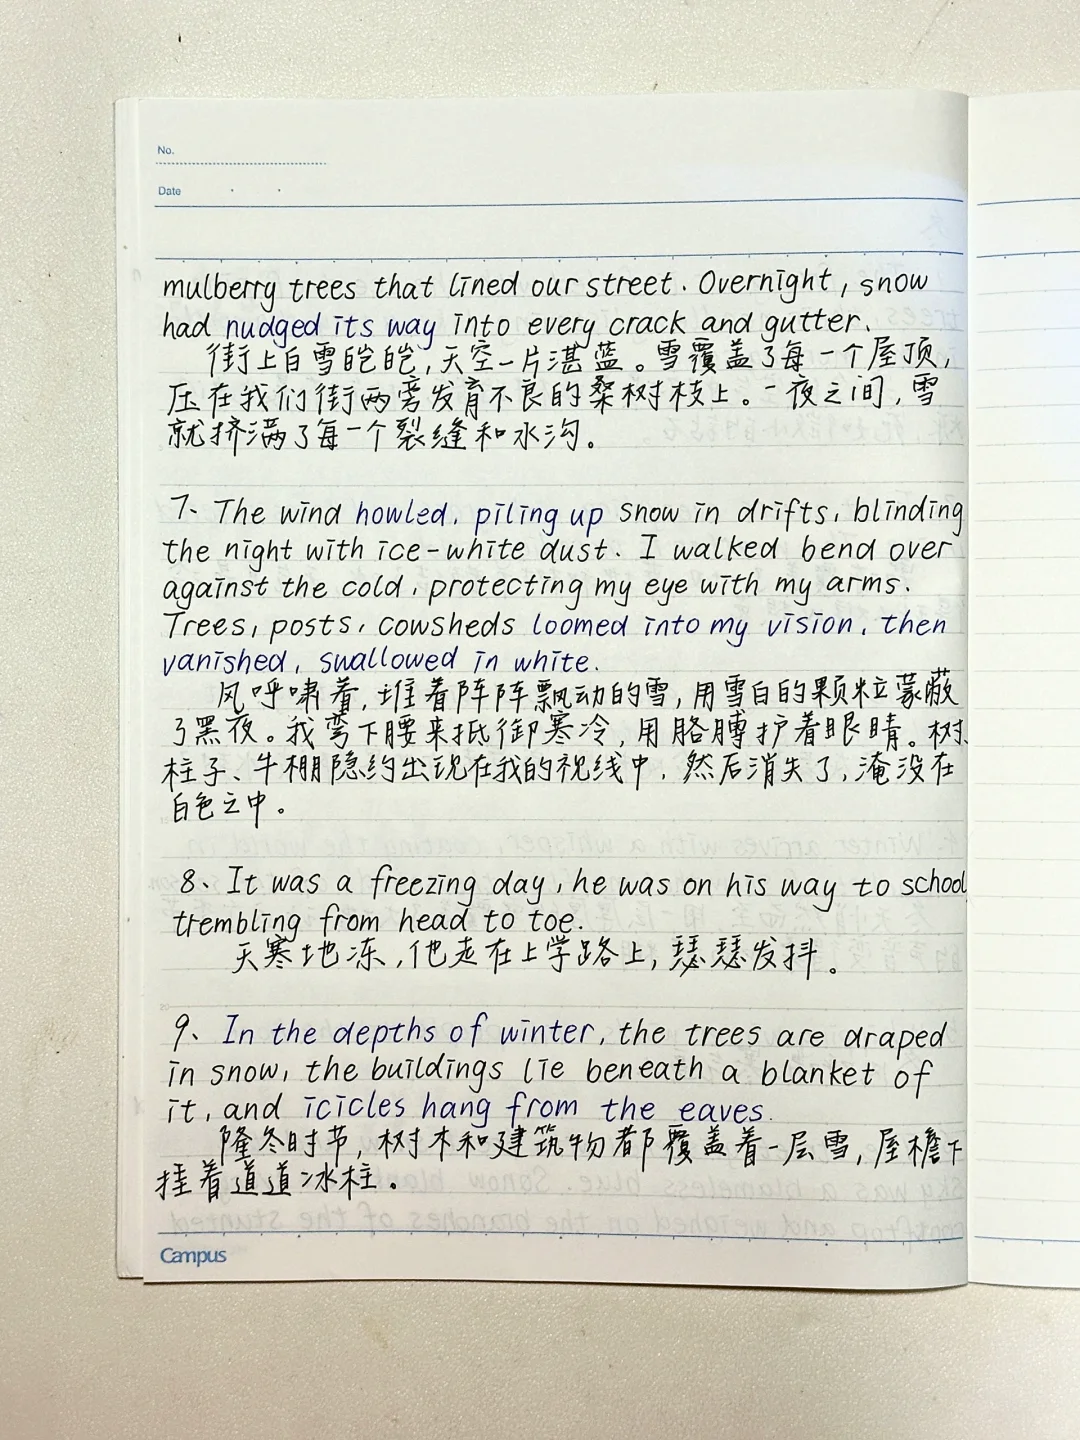 No.
Date
mulberry trees that lined our street. Overnight, snow
had nudged its way into every crack and gutter.
街上白雪皑皑,天空一片湛蓝。雪覆盖了每一个屋顶,
压在我们街两旁发育不良的桑树枝上。一夜之间,雪
就挤满了每一个裂缝和水沟。
7、The wind howled, piling up snow in drifts, blinding
the night with ice-white dust. I walked bend over
against the cold, protecting my eye with my arms.
Trees, posts, cowsheds loomed into my vision, then
vanished, swallowed in white.
风呼啸着,堆着阵阵飘动的雪,用雪白的颗粒蒙蔽
了黑夜。我弯下腰来抵御寒冷,用胳膊护着眼睛。树、
柱子、牛棚隐约出现在我的视线中,然后消失了,淹没在
白色之中。
8、It was a freezing day, he was on his way to school
trembling from head to toe.
天寒地冻,他走在上学路上,瑟瑟发抖。
9、In the depths of winter, the trees are draped
in snow, the buildings lie beneath a blanket of
it, and icicles hang from the eaves.
隆冬时节,树木和建筑物都覆盖着一层雪,屋檐下
挂着道道冰柱。
Campus